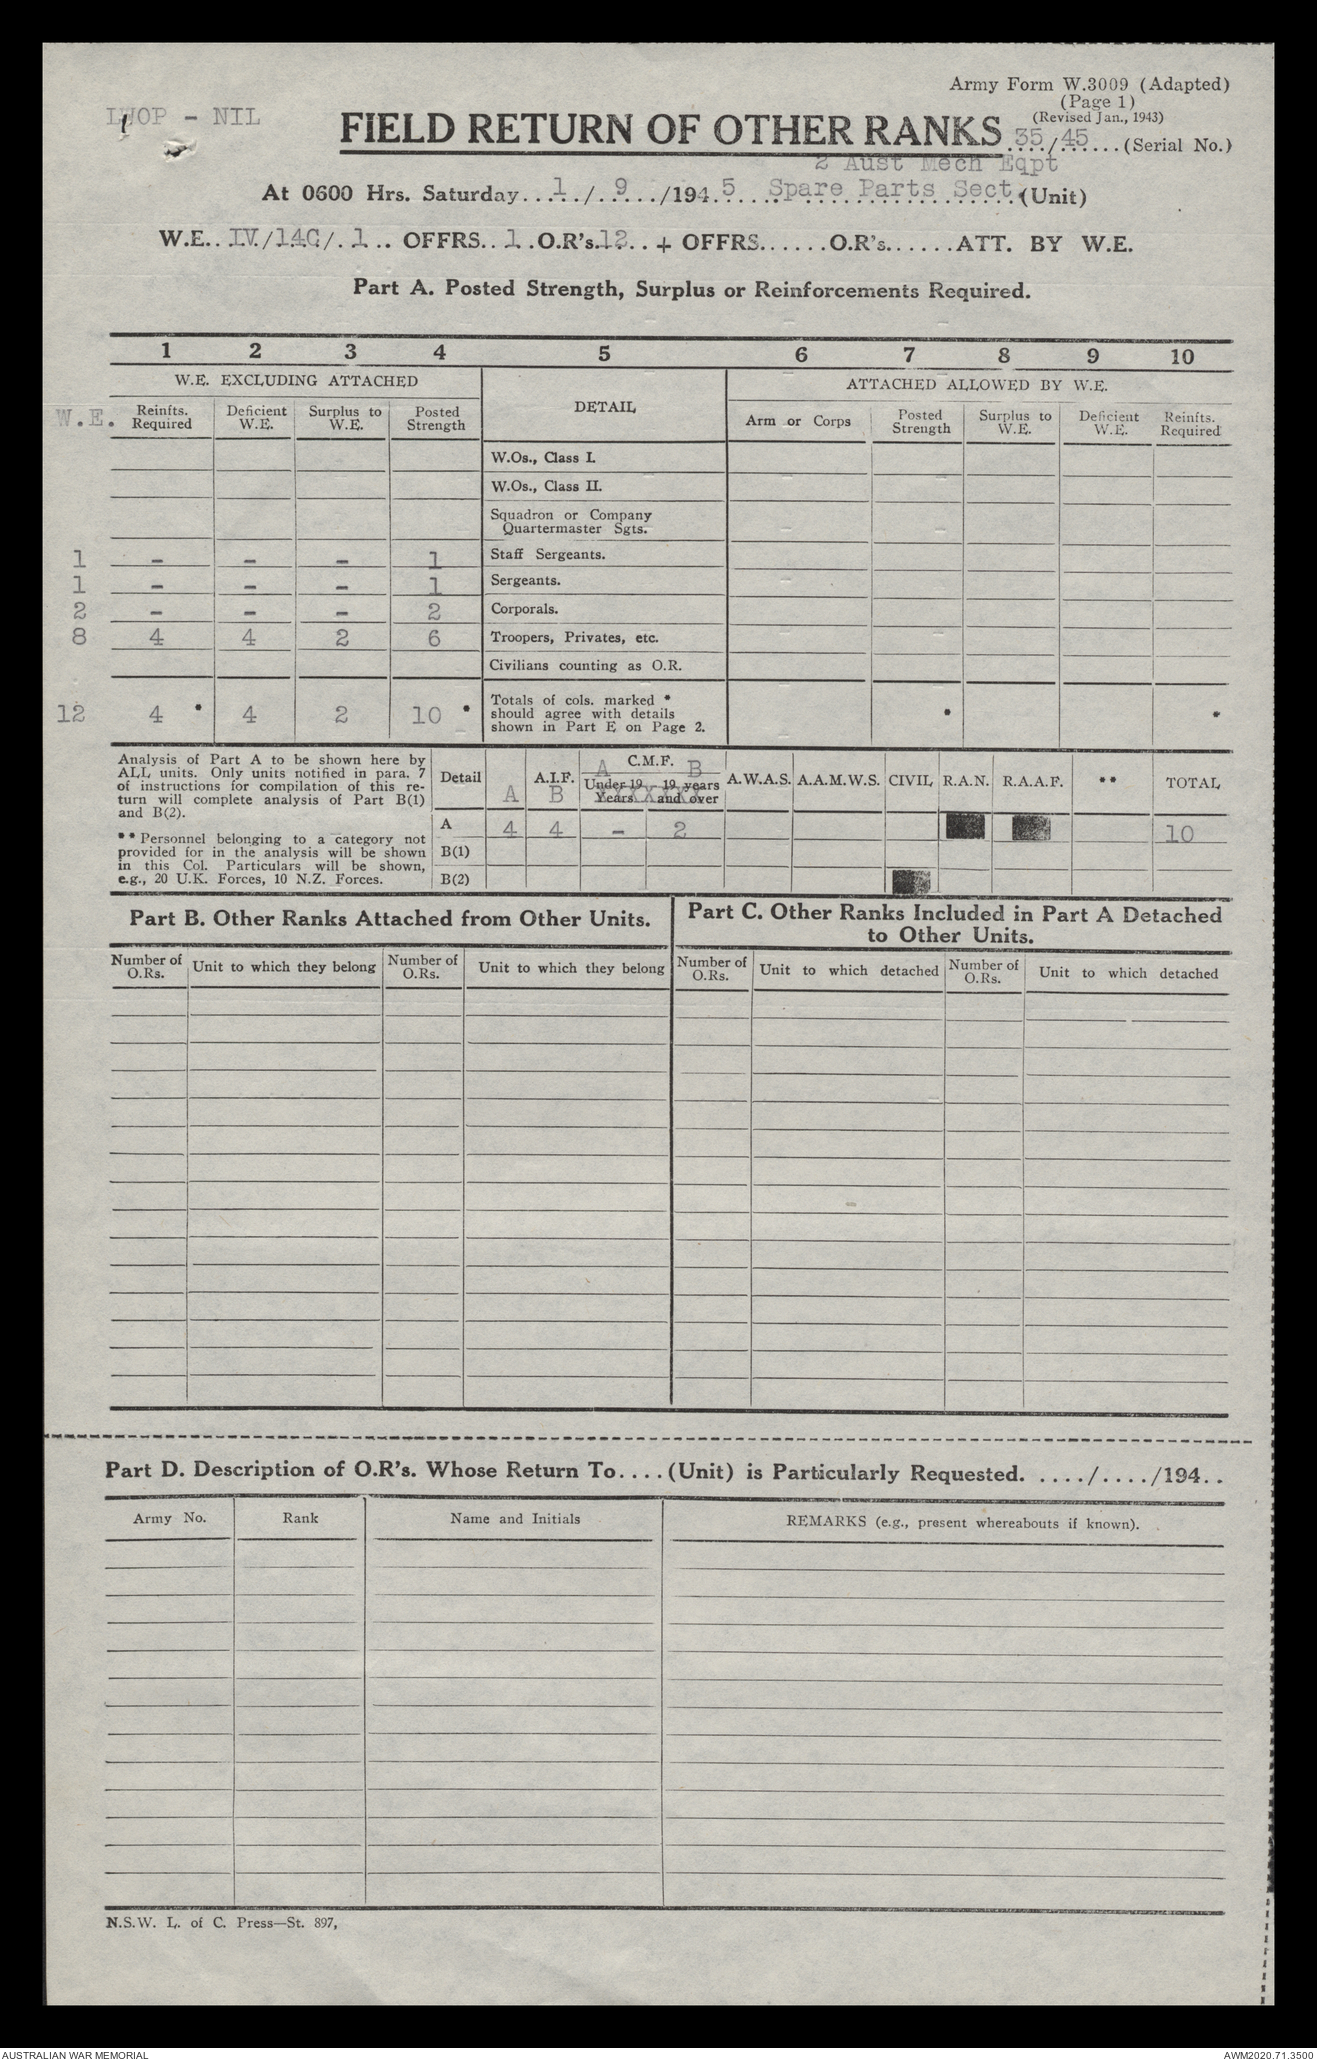 Army Form W.3009 (Adapted)
(Page 1)
(Revised Jan., 1943)
LWOP - NIL
FIELD RETURN OF OTHER RANKS 35/45 (Serial No.)
2 Aust Mech Eqpt
At 0600 Hrs. Saturday.....1./..9.../194.5... Spare Parts Sect.(Unit)
W.E..IV./14C/.1.. OFFRS..1.O.R's.12.. + OFFRS......O.R's......ATT. BY W.E.
Part A. Posted Strength, Surplus or Reinforcements Required.
1 2 3 4 5 6 7 8 9 10
W.E. EXCLUDING ATTACHED DETAIL ATTACHED ALLOWED BY W.E.
W.E. Reinfts. Required Deficient W.E. Surplus to W.E. Posted Strength Arm or Corps Posted Strength Surplus to W.E. Deficient W.E. Reinfts. Required
W.Os., Class I.
W.Os., Class II.
Squadron or Company
Quartermaster Sgts.
1 - - - 1 Staff Sergeants.
1 - - - 1 Sergeants.
2 - - - 2 Corporals.
8 4 4 2 6 Troopers, Privates, etc.
Civilians counting as O.R.
12 4 * 4 2 10 * Totals of cols. marked *
should agree with details
shown in Part E on Page 2. * *
Analysis of Part A to be shown here by
ALL units. Only units notified in para. 7
of instructions for compilation of this re-
turn will complete analysis of Part B(1)
and B(2).
** Personnel belonging to a category not
provided for in the analysis will be shown
in this Col. Particulars will be shown,
e.g., 20 U.K. Forces, 10 N.Z. Forces.
Detail A A.I.F. B C.M.F. A B Under 19 Years 19 years and over A.W.A.S. A.A.M.W.S. CIVIL R.A.N. R.A.A.F. ** TOTAL
A 4 4 - 2 10
B(1)
B(2)
Part B. Other Ranks Attached from Other Units.
Part C. Other Ranks Included in Part A Detached
to Other Units.
Number of O.Rs. Unit to which they belong Number of O.Rs. Unit to which they belong Number of O.Rs. Unit to which detached Number of O.Rs. Unit to which detached
Part D. Description of O.R's. Whose Return To....(Unit) is Particularly Requested. ..../..../194..
Army No. Rank Name and Initials REMARKS (e.g., present whereabouts if known).
N.S.W. L. of C. Press—St. 897,
AUSTRALIAN WAR MEMORIAL AWM2020.71.3500